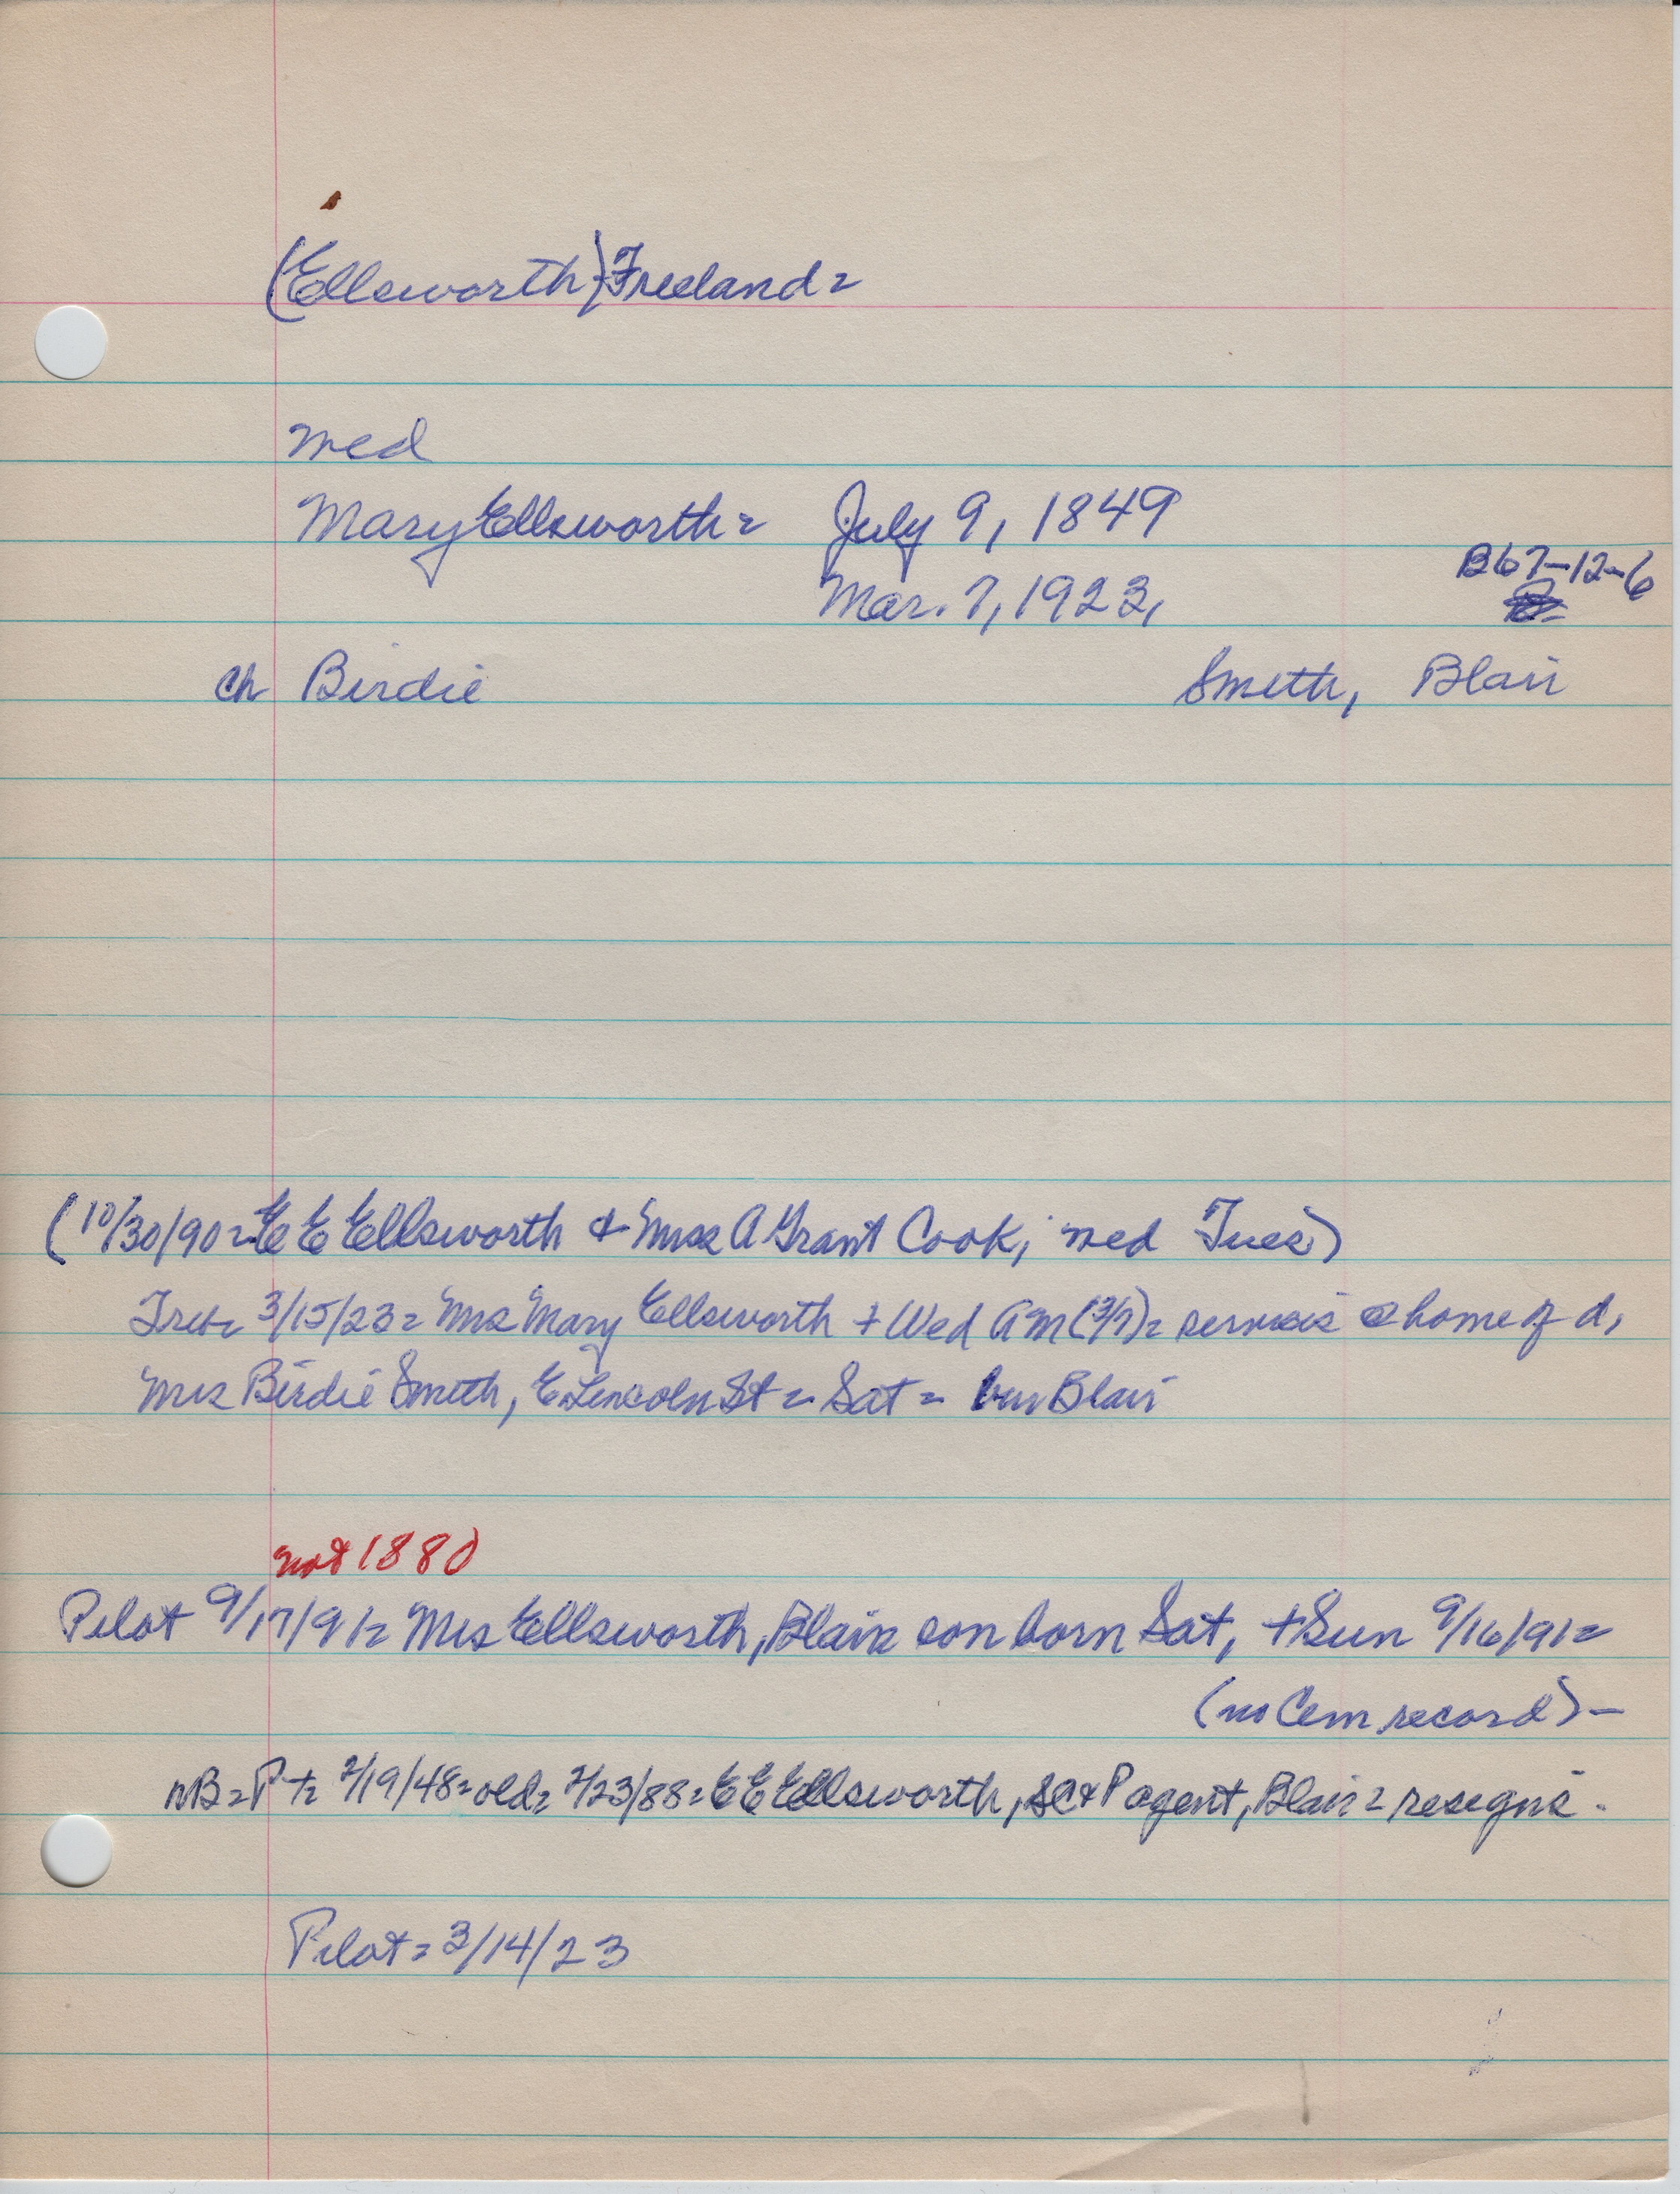 (Ellsworth) Freeland =
med
Mary Ellsworth = July 9, 1849
B67-12-6
Mar. 7, 1923,
ch Birdie Smith, Blair
(10/30/90 = E E Ellsworth & Miss A Grant Cook, med Tues)
Trib = 3/15/23 = Mrs Mary Ellsworth + Wed AM (3/7) = services @ home of d,
Mrs Birdie Smith, E Lincoln St = Sat = bur Blair
not 1880
Pilot 9/17/91 = Mrs Ellsworth, Blair son born Sat, + Sun 9/16/91 =
(no Cem record) -
NB = P + = 2/19/48 = old = 2/23/88 = E E Ellsworth, SC & P agent, Blair = resigns.
Pilot = 3/14/23